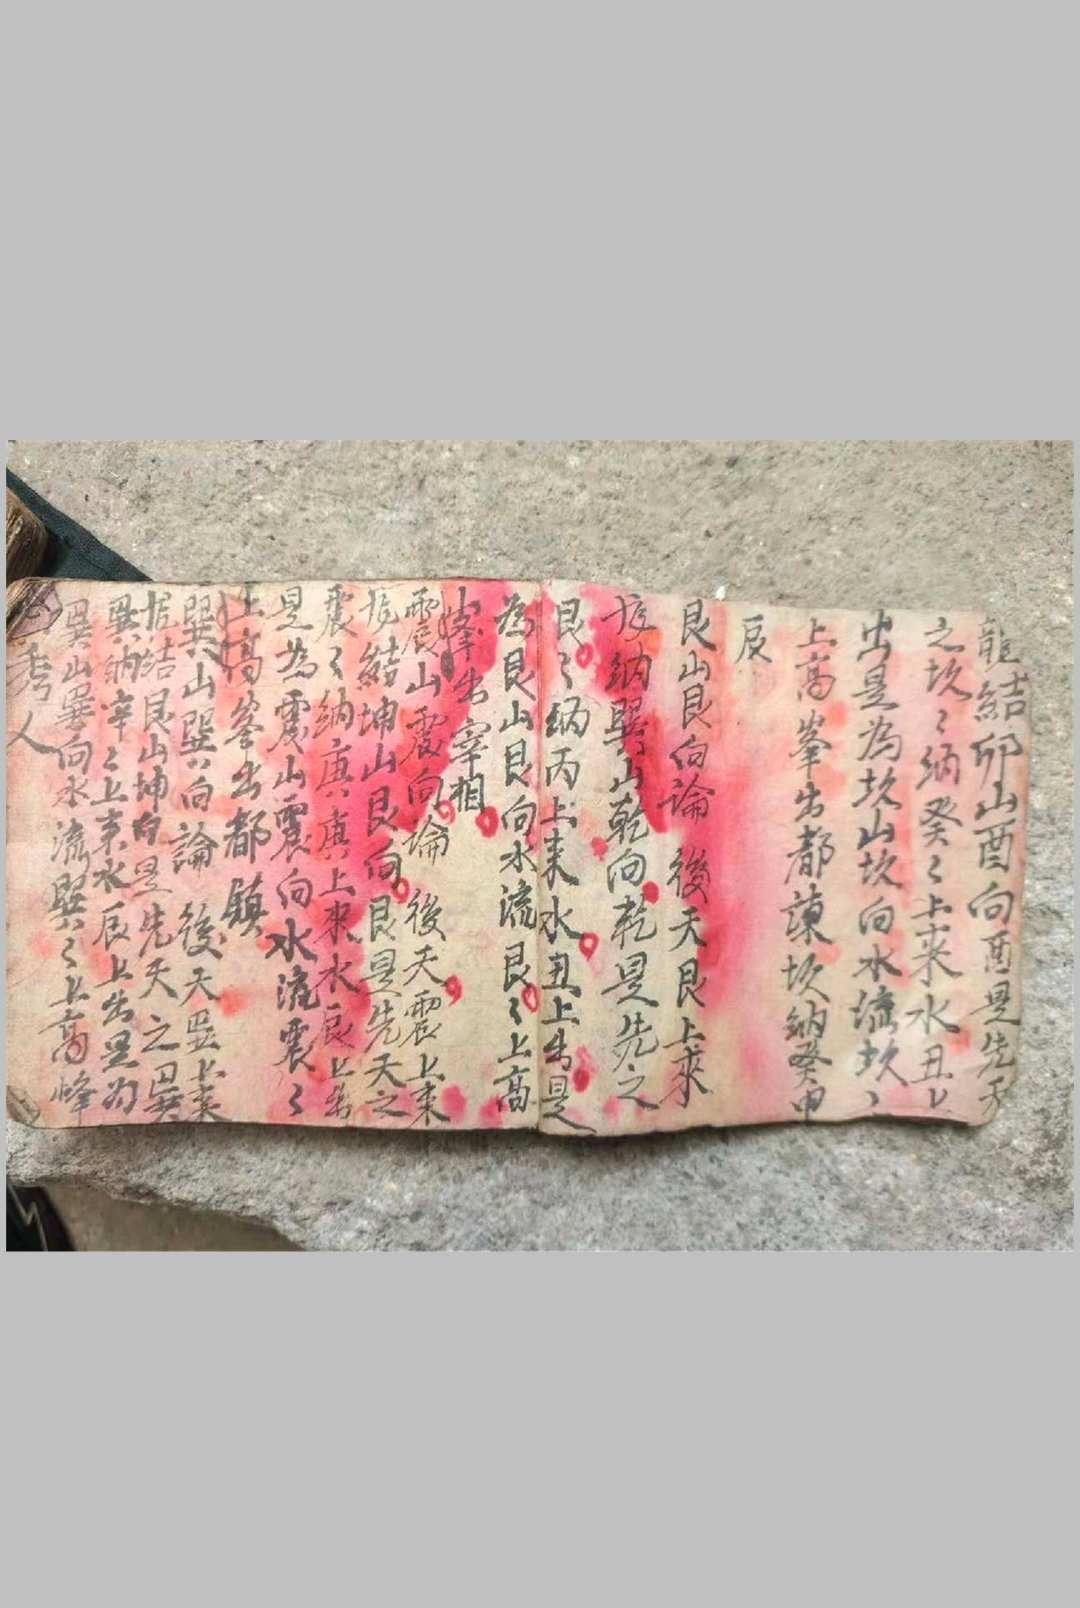 龍結卯山酉向酉是先天
之坎〻納癸〻上来水丑上
出是為坎山坎向水流坎〻
上高峯出都諫坎納癸申
辰
艮山艮向論 後天艮上来
龍納巽山乾向乾是先之
艮〻納丙上来水丑上出是
為艮山艮向水流艮〻上高
峯出宰相
震山震向論 後天震上来
龍結坤山艮向艮是先天之
震〻納庚庚上来水艮上出
是為震山震向水流震〻
上高峯出都鎮
巽山巽向論 後天巫上来
龍結艮山坤向是先天之巽
巽納辛〻上来水辰上出是为
巽山巽向水流巽〻上高峰
秀人